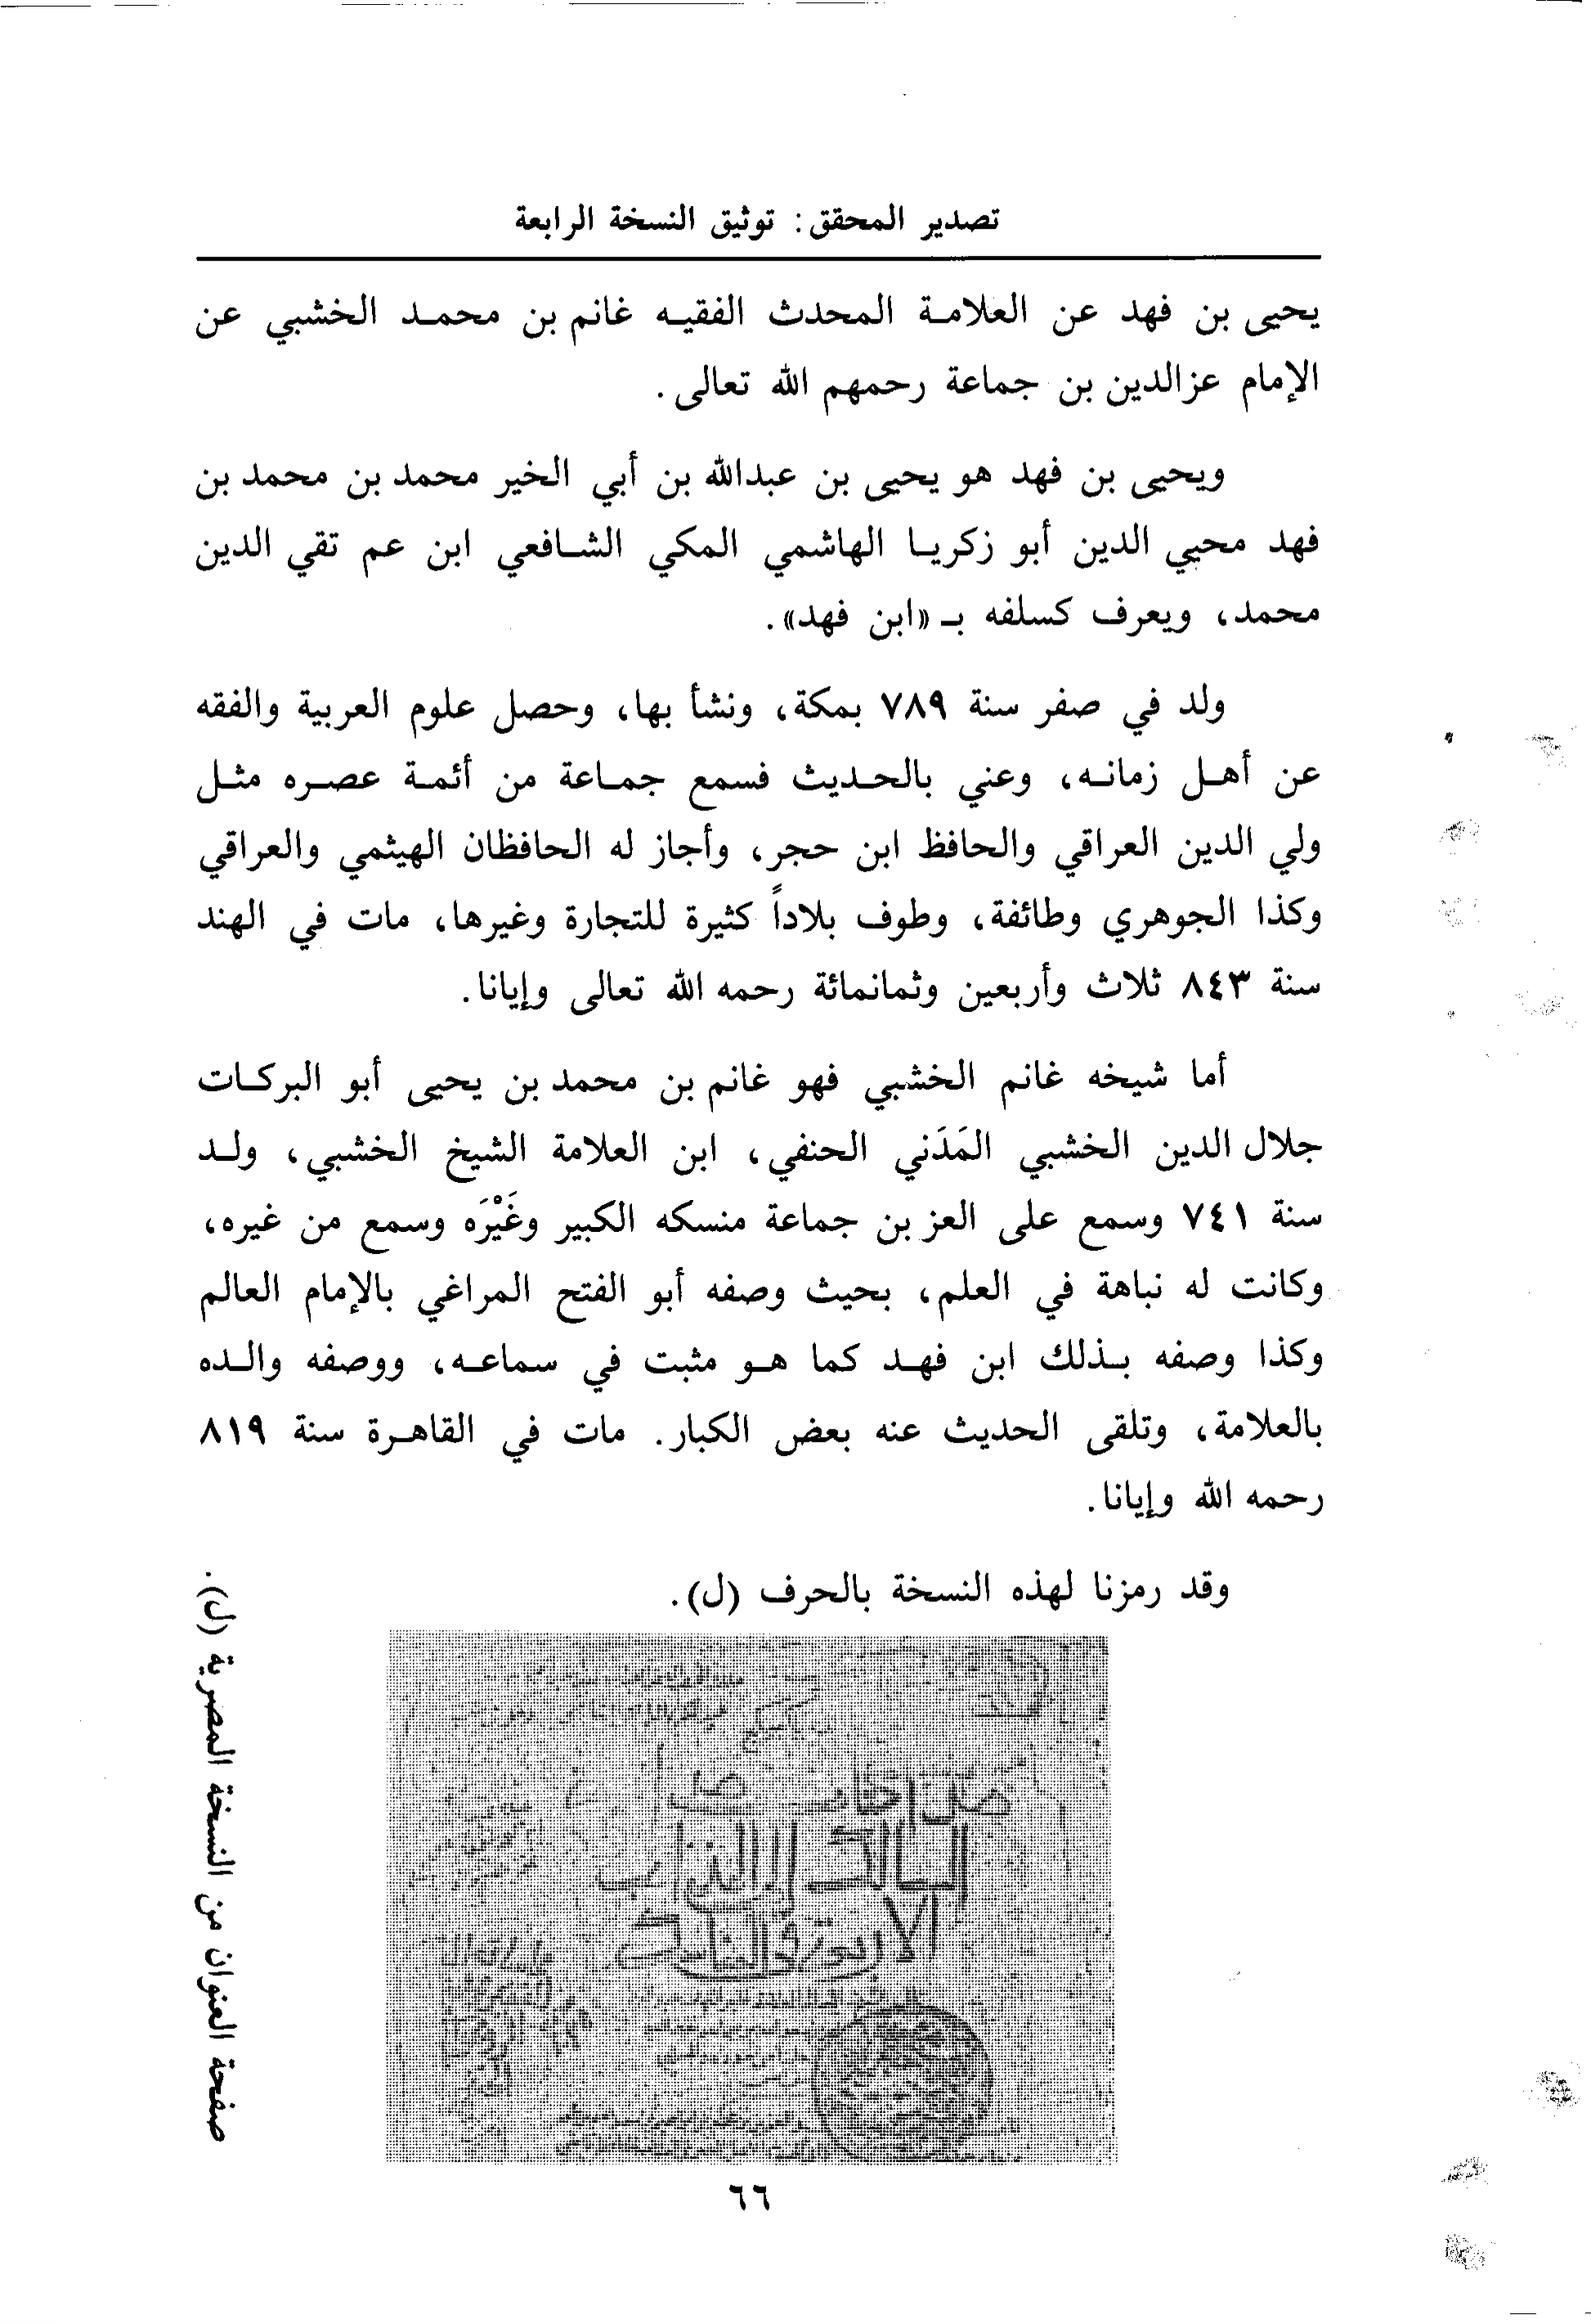 تصدير المحقق: توثيق النسخة الرابعة
يحيى بن فهد عن العلامة المحدث الفقيه غانم بن محمد الخشبي عن
الإمام عزالدين بن جماعة رحمهم الله تعالى.
ويحيى بن فهد هو يحيى بن عبدالله بن أبي الخير محمد بن محمد بن
فهد محيي الدين أبو زكريا الهاشمي المكي الشافعي ابن عم تقي الدين
محمد، ويعرف كسلفه بـ «ابن فهد».
ولد في صفر سنة ٧٨٩ بمكة، ونشأ بها، وحصل علوم العربية والفقه
عن أهل زمانه، وعني بالحديث فسمع جماعة من أئمة عصره مثل
ولي الدين العراقي والحافظ ابن حجر، وأجاز له الحافظان الهيثمي والعراقي
وكذا الجوهري وطائفة، وطوف بلاداً كثيرة للتجارة وغيرها، مات في الهند
سنة ٨٤٣ ثلاث وأربعين وثمانمائة رحمه الله تعالى وإيانا.
أما شيخه غانم الخشبي فهو غانم بن محمد بن يحيى أبو البركات
جلال الدين الخشبي المَدَني الحنفي، ابن العلامة الشيخ الخشبي، ولد
سنة ٧٤١ وسمع على العز بن جماعة منسكه الكبير وغَيْرَه وسمع من غيره،
وكانت له نباهة في العلم، بحيث وصفه أبو الفتح المراغي بالإمام العالم
وكذا وصفه بذلك ابن فهد كما هو مثبت في سماعه، ووصفه والده
بالعلامة، وتلقى الحديث عنه بعض الكبار. مات في القاهرة سنة ٨١٩
رحمه الله وإيانا.
وقد رمزنا لهذه النسخة بالحرف (ل).
صفحة العنوان من النسخة المصرية (ل).
السالك
المذاهب
الأربعة في المناسك
٦٦